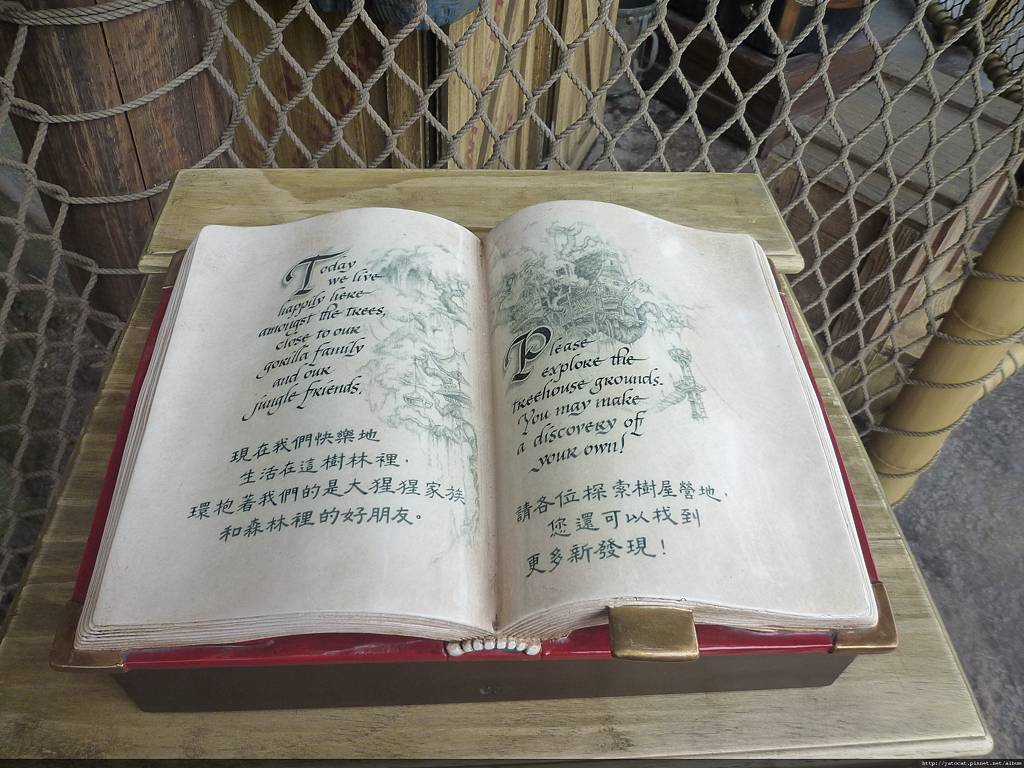 Today
we live
happily here
amongst the trees,
close to our
gorilla family
and our
jungle friends.
現在我們快樂地
生活在這樹林裡,
環抱著我們的是大猩猩家族
和森林裡的好朋友。
Please
explore the
treehouse grounds.
You may make
a discovery of
your own!
請各位探索樹屋營地,
您還可以找到
更多新發現!
http://jatocat.pixnet.net/album